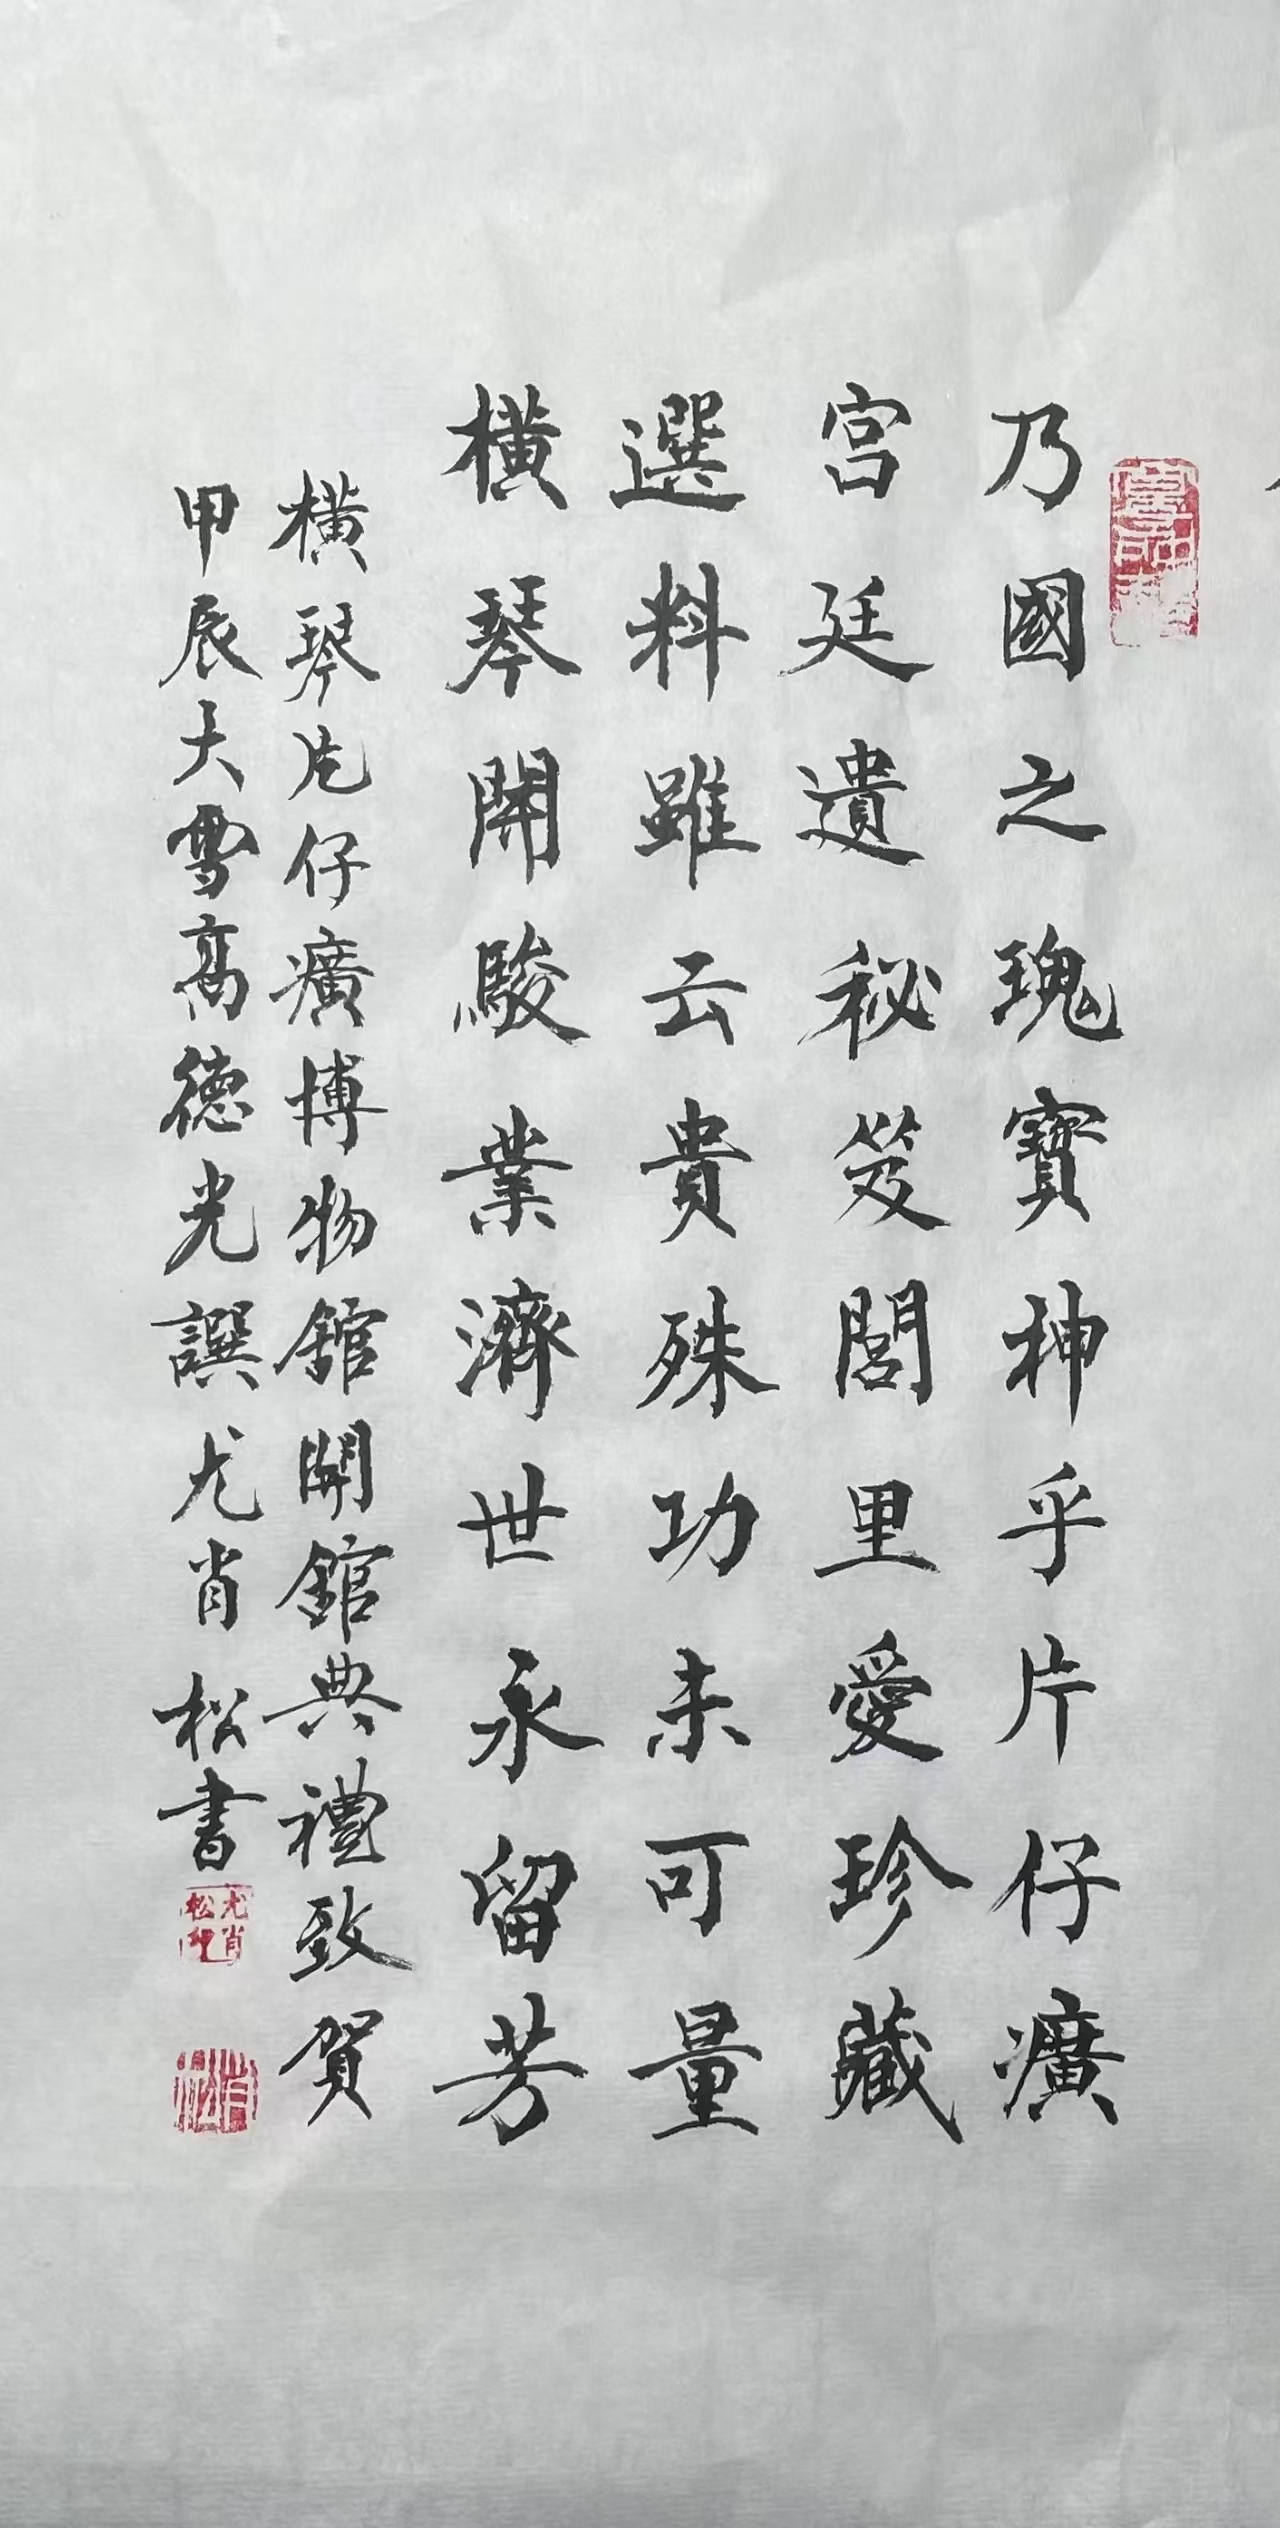 乃國之瑰寶神乎片仔癀
宮廷遺秘笈閭里愛珍藏
選料雖云貴殊功未可量
橫琴開駿業濟世永留芳
橫琴片仔癀博物館開館典禮致賀
甲辰大雪高德光譔尤肖松書
尤肖松印